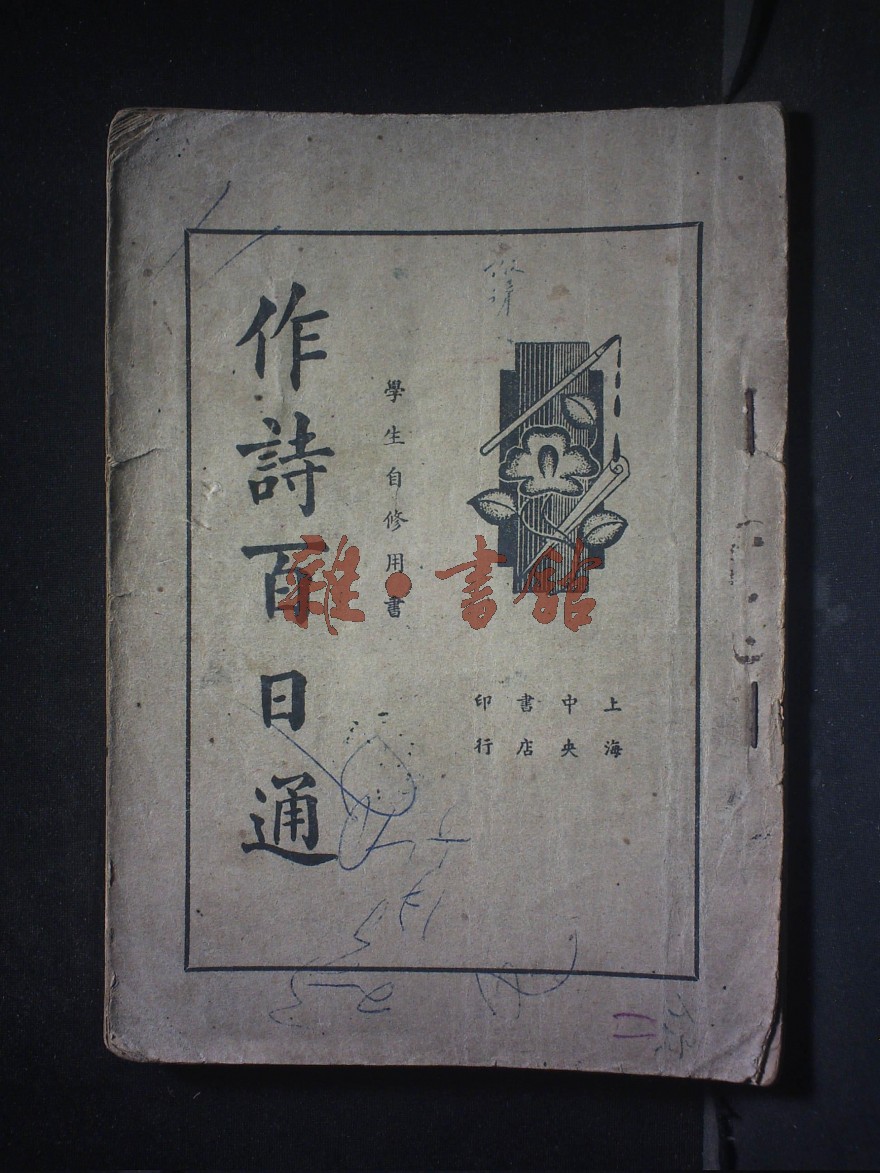 作詩百日通
學生自修用書
上海
中央
書店
印行
雜·書館